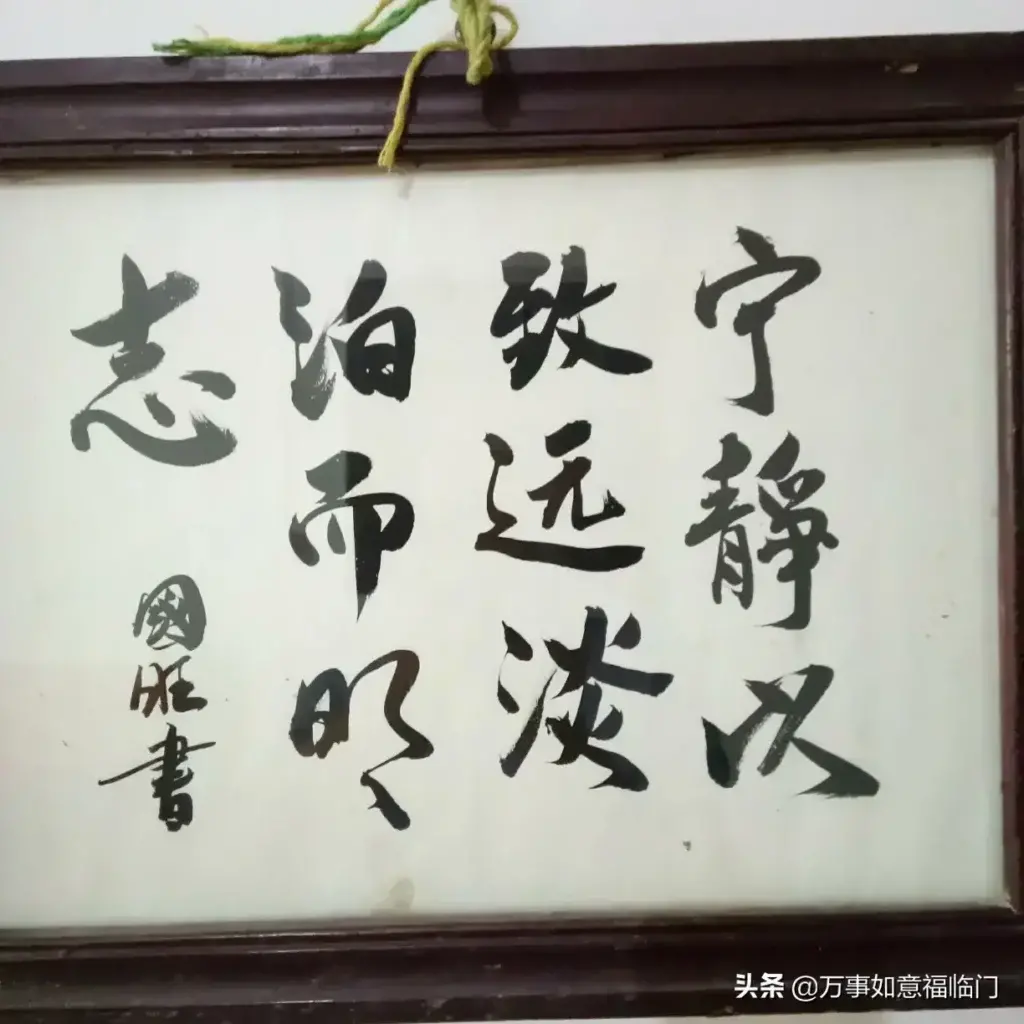 宁静以
致远淡
泊而明
志
國旺書
头条 @万事如意福临门